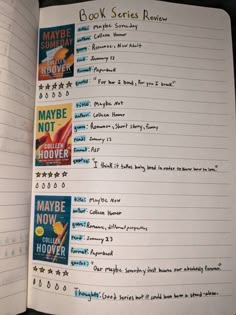 Book Series Review
MAYBE
SOMEDAY
COLLEEN
HOOVER
title: Maybe Someday
author: Colleen Hoover
genre: Romance, New Adult
read: January 12
format: Paperback
quote: "For her I bend, for you I break"
MAYBE
NOT
COLLEEN
HOOVER
title: Maybe Not
author: Colleen Hoover
genre: Romance, Short Story, Funny
read: January 12
format: PDF
quote: "I think it takes being hated in order to know how to love."
MAYBE
NOW
COLLEEN
HOOVER
title: Maybe Now
author: Colleen Hoover
genre: Romance, different perspectives
read: January 23
format: Paperback
quote: "Our maybe someday just became our absolutely forever."
Thoughts: Good series but it could have been a stand-alone.